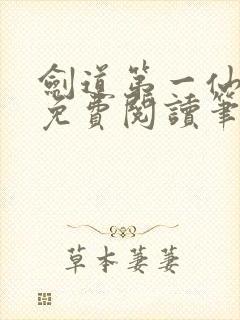 劍道第一仙
免費閱讀筆
草本萋萋